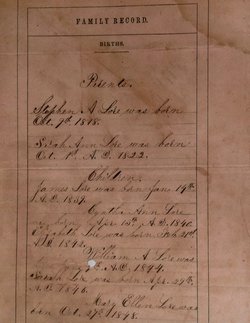 FAMILY RECORD.
BIRTHS.
Parents.
Stephen A Lore was born
Oct. 7th 1818.
Sarah Ann Lore was born
Oct. 1st A.D. 1822.
Children
James Lore was born Jany 19th
A.D. 1839.
Cynthia Ann Lore
was born Apr. 15th A.D. 1840
Elizabeth Lore was born Feb. 21st
A.D. 1842.
William A Lore was
born A.D. 1844.
Sarah Lore was born Apr. 29th
A.D. 1846.
Mary Ellen Lore was
born Oct. 27th 1848.